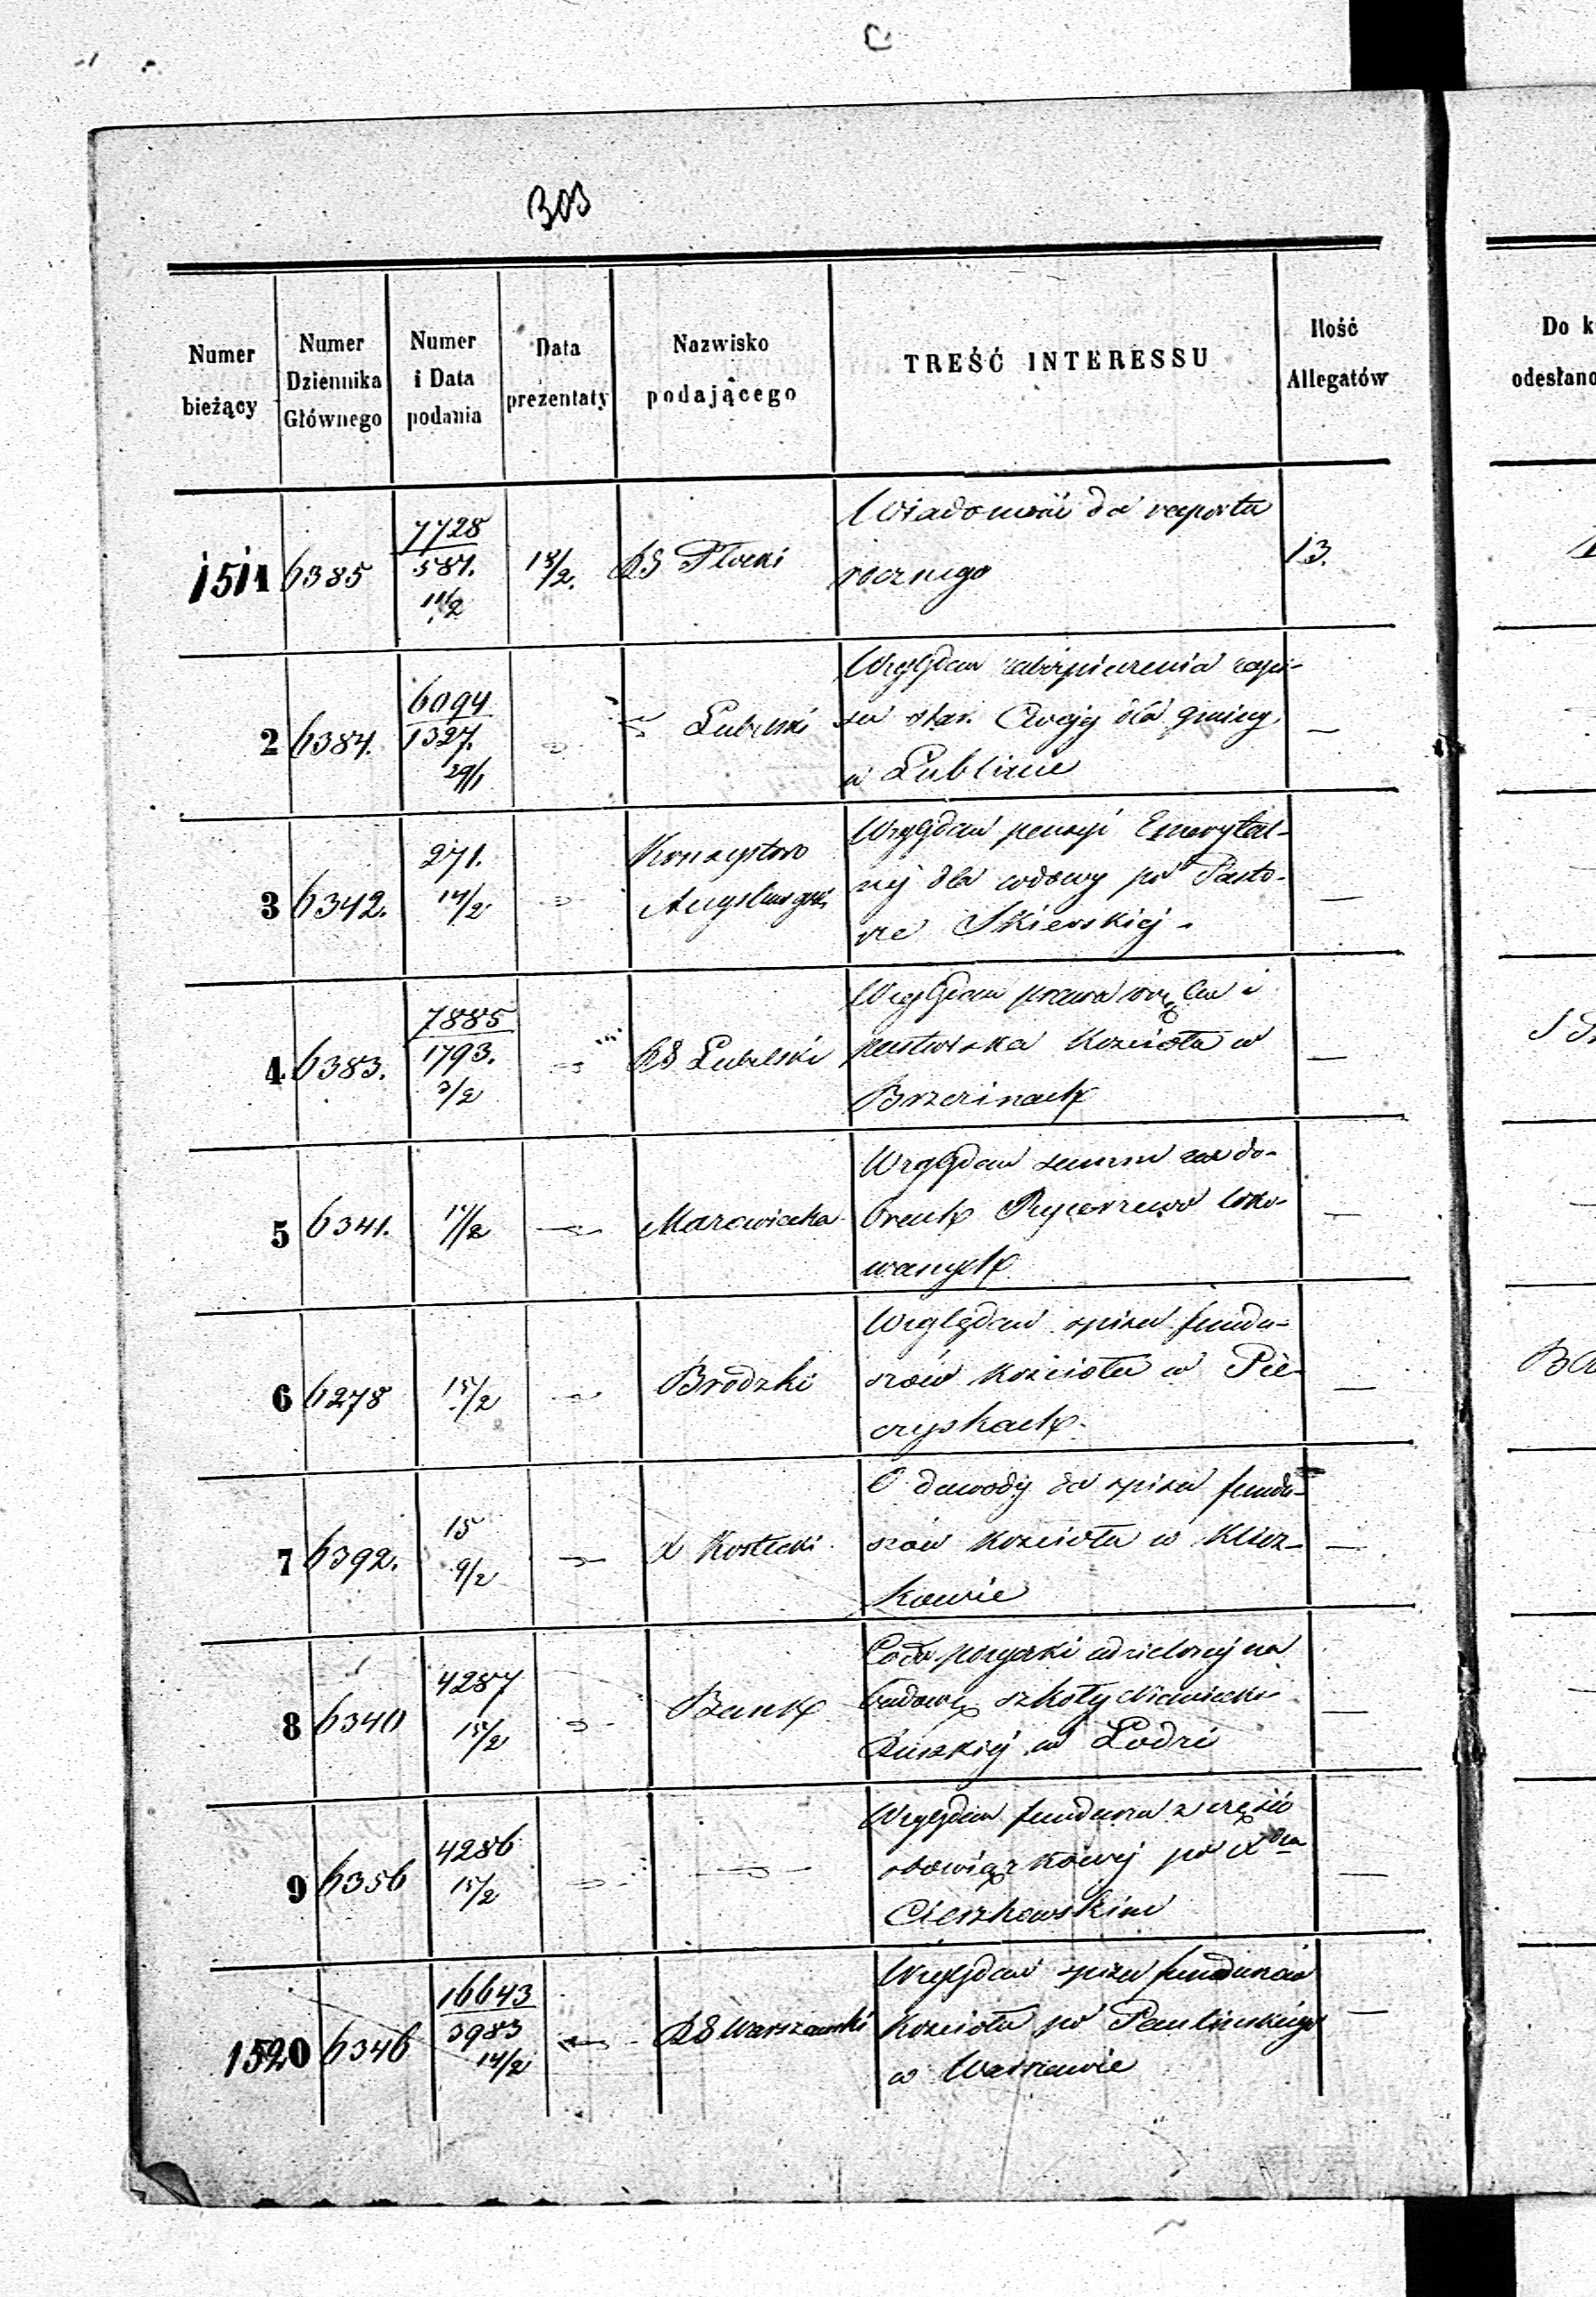 303
Numer bieżący
Numer Dziennika Głównego
Numer i Data podania
Data prezentaty
Nazwisko podającego
TREŚĆ INTERESSU
Ilość Allegatów
Do
odesłano
1511 6385 7728 / 587. 11/2 18/2. RG Płocki Wiadomość do raportu
rocznego 13.
2 6384. 6094 / 1327. 29/1 Lubelski Względem zabezpieczenia zapi-
su star. dla gminy
w Lublinie —
3 6342. 271. 14/2 Konsystorz Augsburgski Względem pensyi Emerytal-
nej dla wdowy po Pasto-
rze Skierskiej. —
4 6383. 7885 / 1793. 3/2 RG Lubelski Względem prawa wrębu i
pastwiska Kościoła w
Brzezinach —
5 6341. 11/2 Marcwicka Względem summ na do-
brach loko-
wanych —
6 6278 15/2 Brodzki Względem spisu fundu-
szów Kościoła w Pie-
czyskach. —
7 6392. 15 9/2 X Kostecki O dowody do spisu fundu-
szów Kościoła w Klicz-
kowie —
8 6340 4287 15/2 Bank Co do pożyczki udzielonej na
budowę szkoły Niemiecko
Ruskiej w Łodzi —
9 6356 4286 15/2 — Względem funduszu z części
obowiązkowej po
Cieszkowskim —
1520 6346 16643 / 3983 14/2 RG Warszawski Względem spisu funduszów
Kościoła po Paulińskiego
w Warszawie —